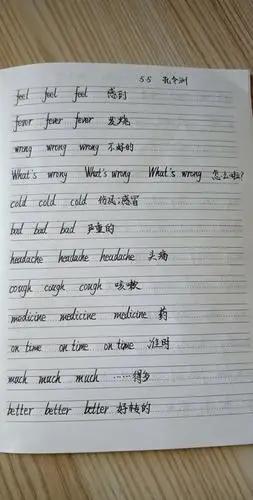 5.5
feel feel feel 感到
fever fever fever 发烧
wrong wrong wrong 不好的
What's wrong What's wrong What's wrong 怎么啦?
cold cold cold 伤风;感冒
bad bad bad 严重的
headache headache headache 头痛
cough cough cough 咳嗽
medicine medicine medicine 药
on time on time on time 准时
much much much ……得多
better better better 好转的